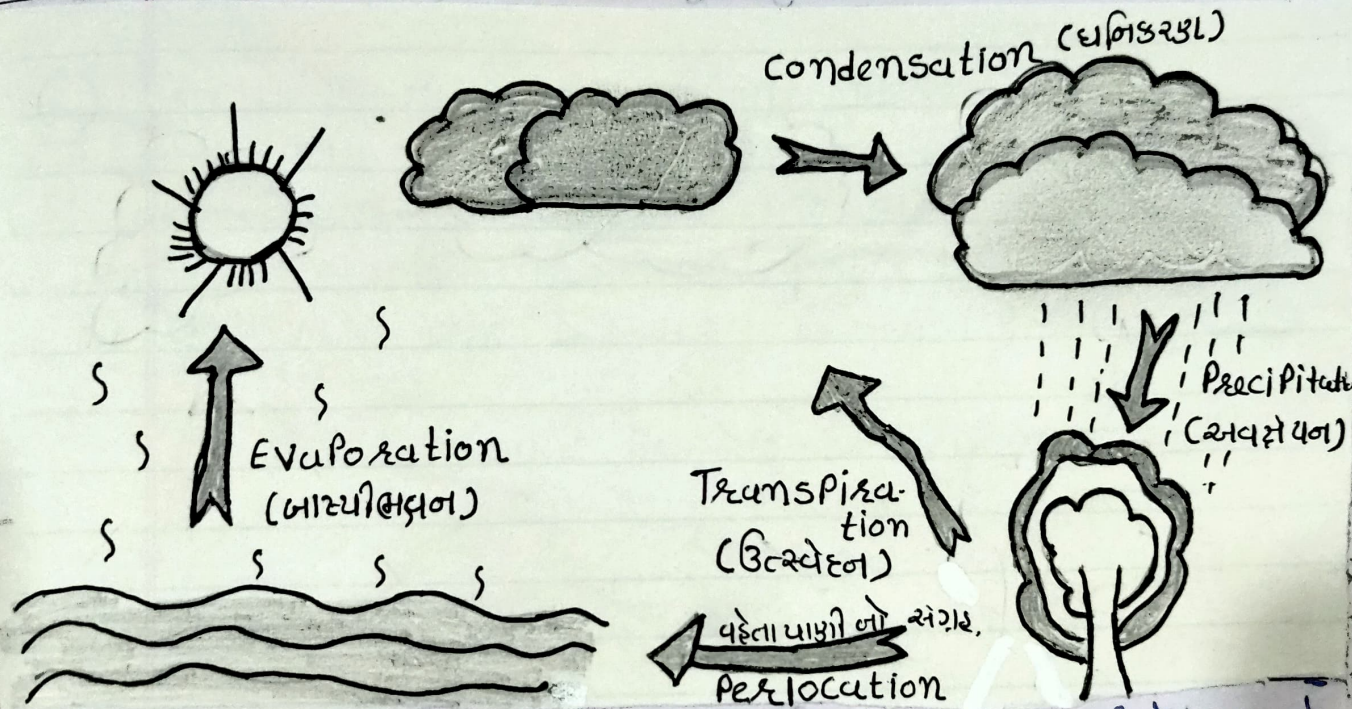 Condensation (ઘનિકરણ)
Precipitati
(અવક્ષેપન)
Evaporation
(બાષ્પીભવન)
Transpira-
tion
(ઉત્સ્વેદન)
વહેતા પાણી નો સંગ્રહ.
Perlocation